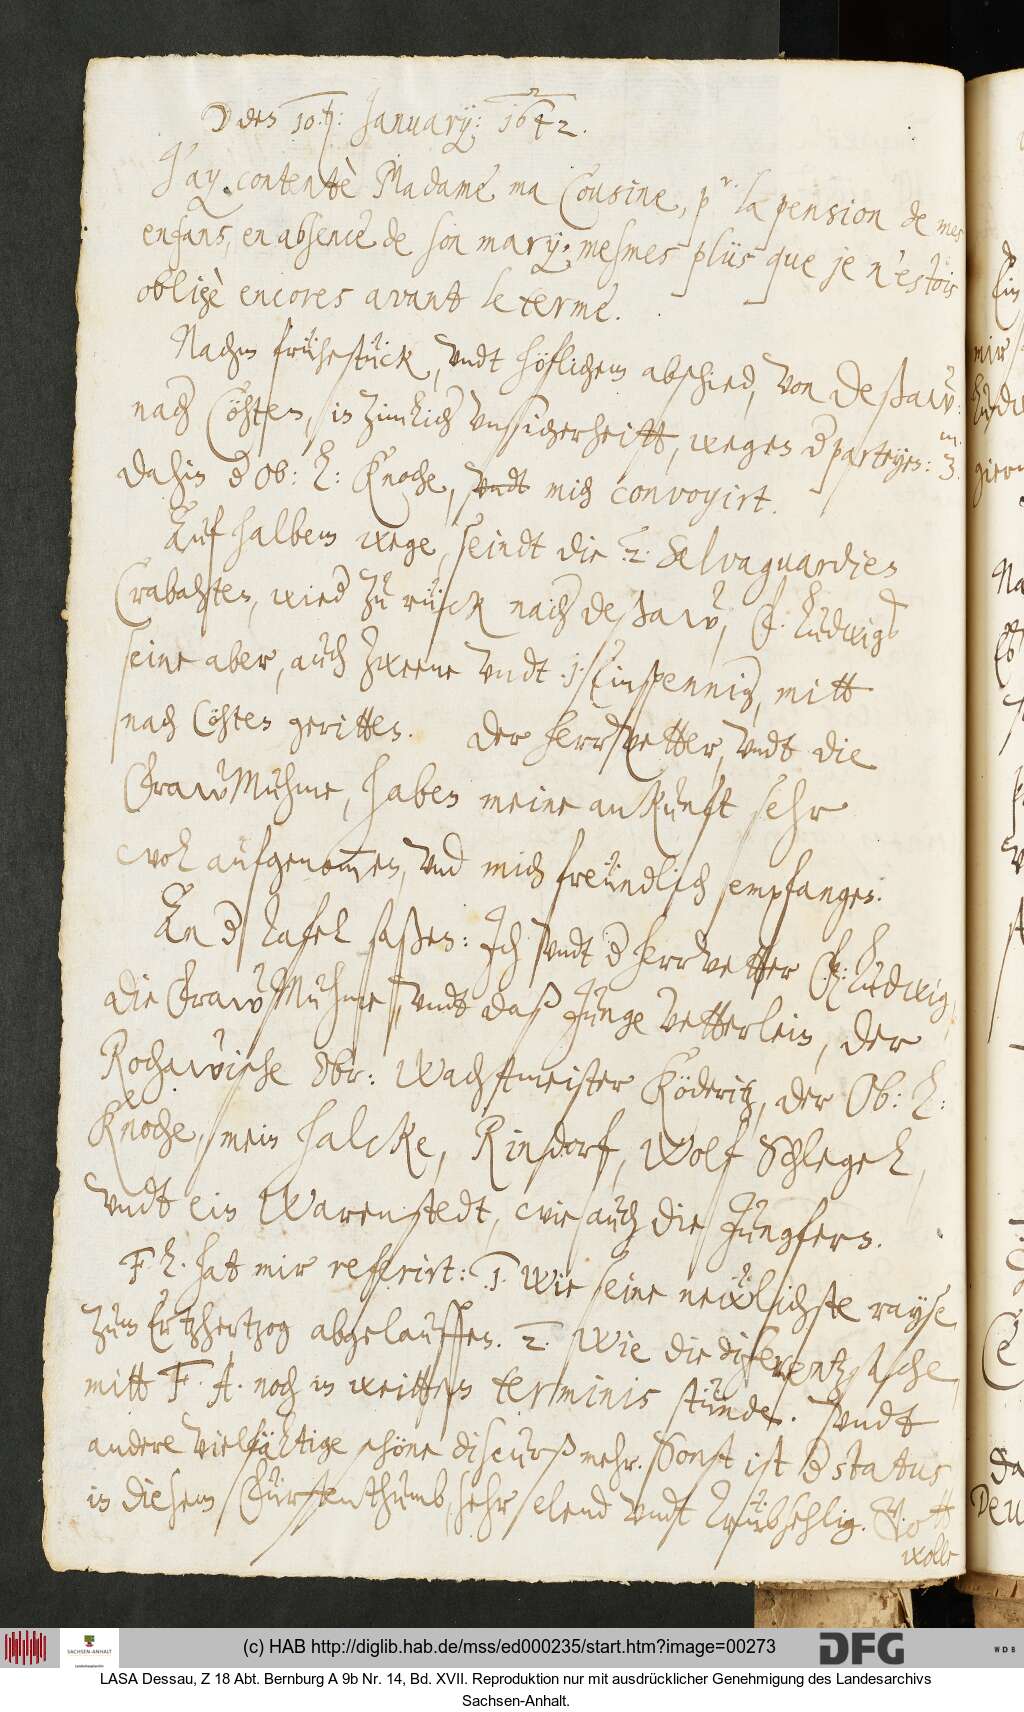 ☽ den 10.t: January: 1642.
J'ay contentè Madame ma Cousine, pr. la pension de mes
enfans, en absence de son mary; mesmes plüs que je n'estois
obligè encores avant le terme.
Nachm frühestück, undt höflichem abschied, von Deßaw:
nach Cöhten, in zimlich unsicherheitt, wegen d parteyen: 3. m.
dahin d Ob: L: Knoche, undt mich convoyirt.
Auf halbem wege, seindt die 2. Salvaguardien
Crabahten, wied zu rück nach deßaw, F. Ludwigs
seine aber, auch zweene undt 1. Einspennig, mitt
nach Cöhten geritten. Der herrvetter, undt die
FrawMuhme, haben meine ankunft sehr
wol aufgenommen, und mich freundlich empfangen.
An d Tafel saßen: Ich undt d herrvetter F: Ludwig,
die FrawMuhme, undt daß Junge Vetterlein, der
Rochawische Obr: Wachtmeister Köderitz, der Ob: L:
Knoche, mein Halcke, Rindorf, Wolf Schlegel,
undt ein Warenstedt, wie auch die Jungfern.
F. L. hat mir referirt: 1. Wie seine newlichste rayse,
zum Ertzhertzog abgelauffen. 2. Wie die differentzsache,
mitt F. A. noch in weitten terminis stünde. undt
andere vielfältige schöne discurß mehr. Sonst ist d status
in diesem Fürstenthumb, sehr elend undt trübsehlig. Gott
wolle
(c) HAB http://diglib.hab.de/mss/ed000235/start.htm?image=00273
SACHSEN-ANHALT
DFG
WDB
LASA Dessau, Z 18 Abt. Bernburg A 9b Nr. 14, Bd. XVII. Reproduktion nur mit ausdrücklicher Genehmigung des Landesarchivs
Sachsen-Anhalt.